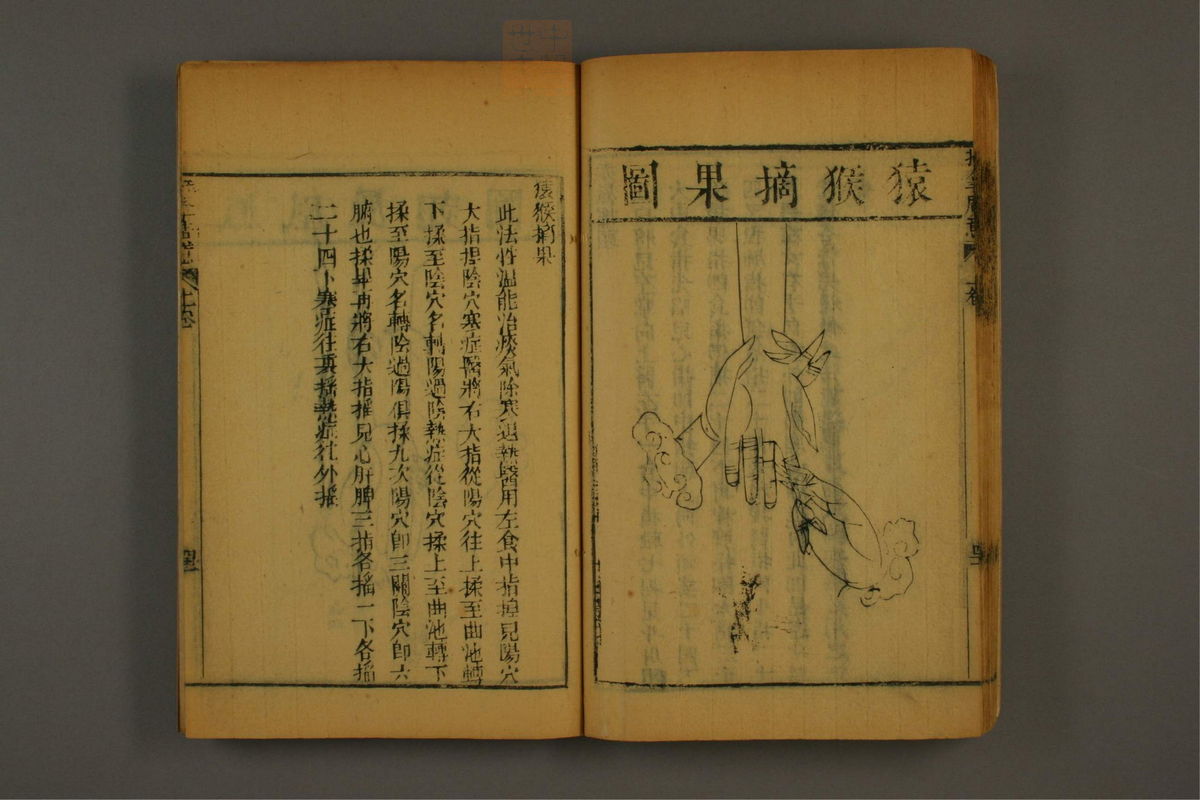 猿猴摘果圖
猿猴摘果
此法性温能治痰氣除寒退熱醫用左食中指捏兒陽穴
大指捏陰穴寒症醫將右大指從陽穴往上揉至曲池轉
下揉至陰穴名轉陽過陰熱症從陰穴揉上至曲池轉下
揉至陽穴名轉陰過陽俱揉九次陽穴即三關陰穴即六
腑也揉畢再將右大指搖兒心肝脾三指各搖一下各搖
二十四下寒症往裏搖熱症往外搖
上卷